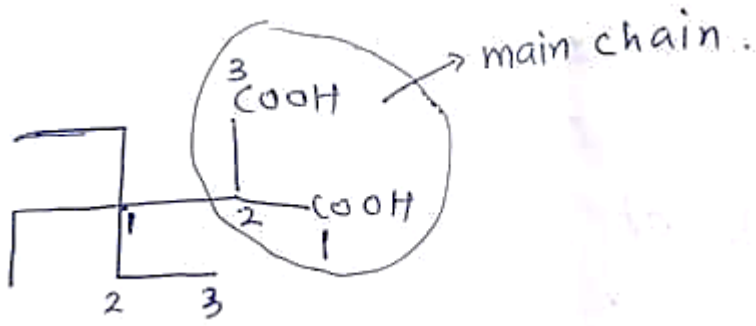 main chain.
3
COOH
2
COOH
1
1
2
3